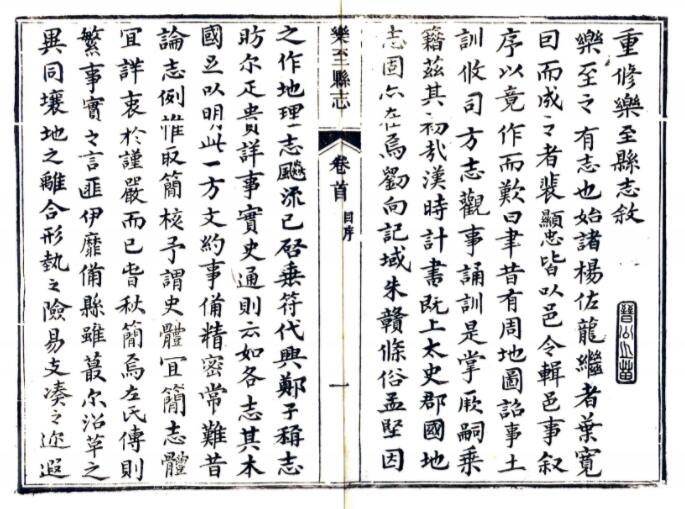 重修樂至縣志敘
樂至之有志也始諸楊佐龍繼者葉寬
曰而成之者裴顯忠皆以邑令輯邑事叙
序以竟作而歎曰聿昔有周地圖詔事土
訓攸司方志觀事誦訓是掌厥嗣乘
籍茲其初哉漢時計書既上太史郡國地
志固亦在焉劉向記域朱贛條俗孟堅因
樂至縣志
卷首
目序
一
之作地理一志飇流已啓垂符代興鄭子稱志
昉尔疋貴詳事實史通則云如各志其本
國足以明此一方文約事備精密常難昔
論志例惟取簡核予謂史體冝簡志體
冝詳衷於謹嚴而已春秋簡焉左氏傳則
繁事實之言匪伊靡備縣雖蕞尔沿革之
異同壤地之離合形埶之險易支凑之迩遐